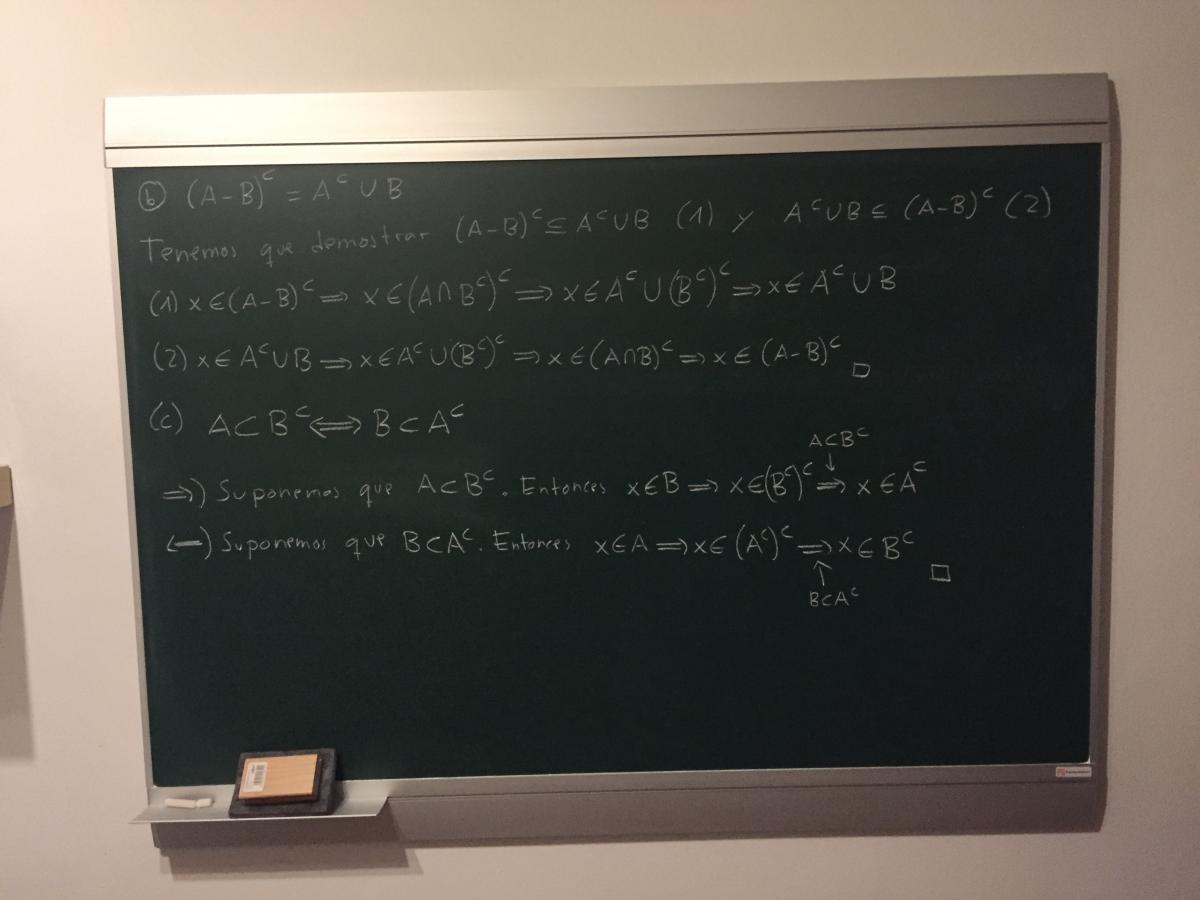 ⓑ (A-B)ᶜ = Aᶜ ∪ B
Tenemos que demostrar (A-B)ᶜ ⊆ Aᶜ∪B (1) y Aᶜ∪B ⊆ (A-B)ᶜ (2)
(1) x∈(A-B)ᶜ ⟹ x∈(A∩Bᶜ)ᶜ ⟹ x∈Aᶜ∪(Bᶜ)ᶜ ⟹ x∈Aᶜ∪B
(2) x∈Aᶜ∪B ⟹ x∈Aᶜ∪(Bᶜ)ᶜ ⟹ x∈(A∩B)ᶜ ⟹ x∈(A-B)ᶜ □
(c) A⊂Bᶜ ⟺ B⊂Aᶜ
A⊂Bᶜ
↓
⟹) Suponemos que A⊂Bᶜ. Entonces x∈B ⟹ x∈(Bᶜ)ᶜ ⟹ x∈Aᶜ
⟸) Suponemos que B⊂Aᶜ. Entonces x∈A ⟹ x∈(Aᶜ)ᶜ ⟹ x∈Bᶜ □
↑
B⊂Aᶜ